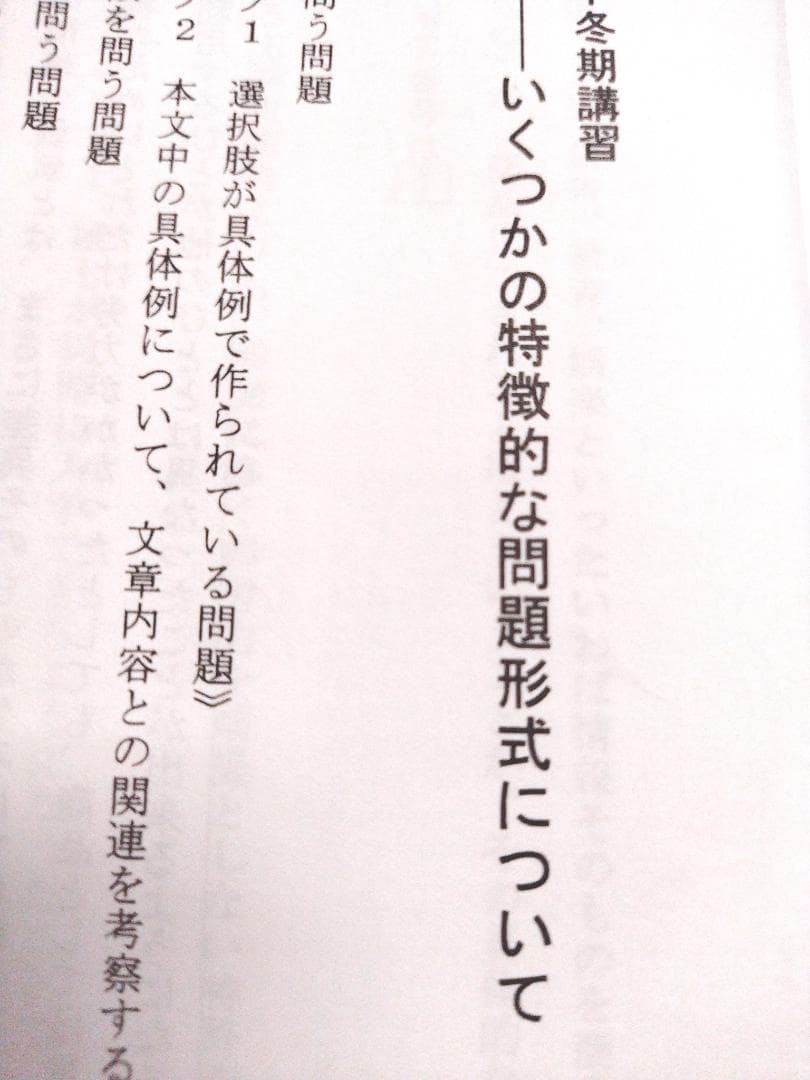 冬期講習
――いくつかの特徴的な問題形式について
問う問題
1　選択肢が具体例で作られている問題》
2　本文中の具体例について、文章内容との関連を考察する
を問う問題
問う問題